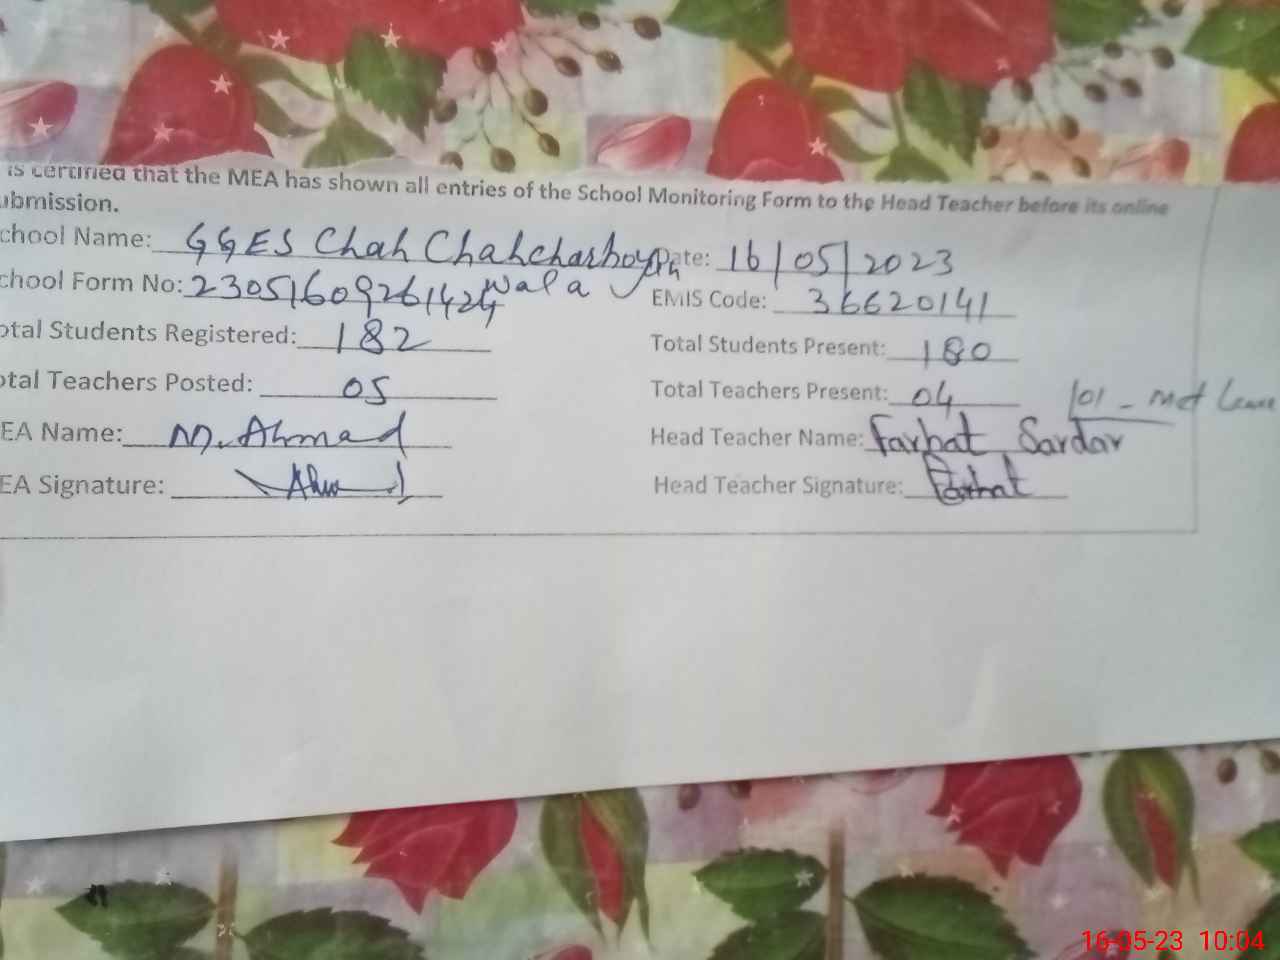 is certified that the MEA has shown all entries of the School Monitoring Form to the Head Teacher before its online
ubmission.
chool Name: GGES Chah Chahcharhoy Date: 16/05/2023
wala
chool Form No: 23051609261424 EMIS Code: 36620141
otal Students Registered: 182 Total Students Present: 180
otal Teachers Posted: 05 Total Teachers Present: 04 /01 - Leave
EA Name: M. Ahmad Head Teacher Name: Farhat Sardar
EA Signature: Head Teacher Signature: Farhat
16-05-23 10:04